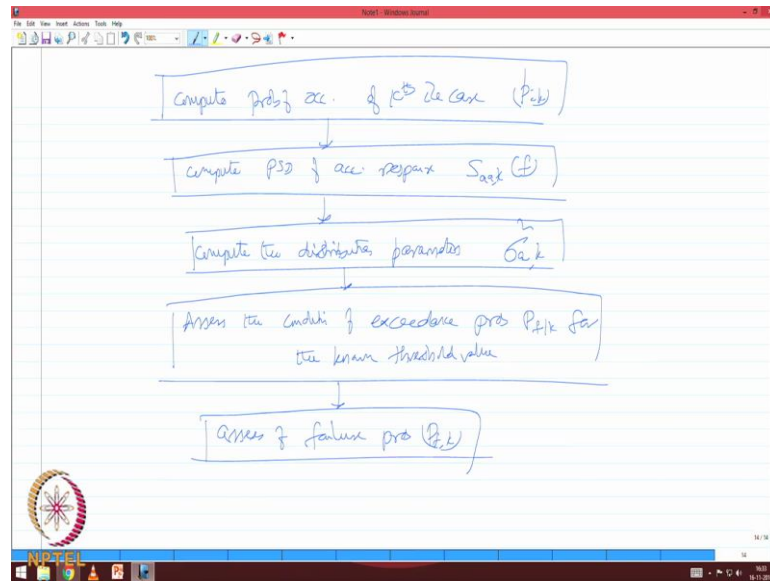 Note1 - Windows Journal
File Edit View Insert Actions Tools Help
compute prob of occ. of kth ice case (Pi,k)
compute PSD of acc. response Saa,k (f)
compute the distribution parameters σa,k
Assess the condition of exceedance prob Pf|k for
the known threshold value
assess of failure prob (Pf,k)
NPTEL
14 / 14
14
16:33